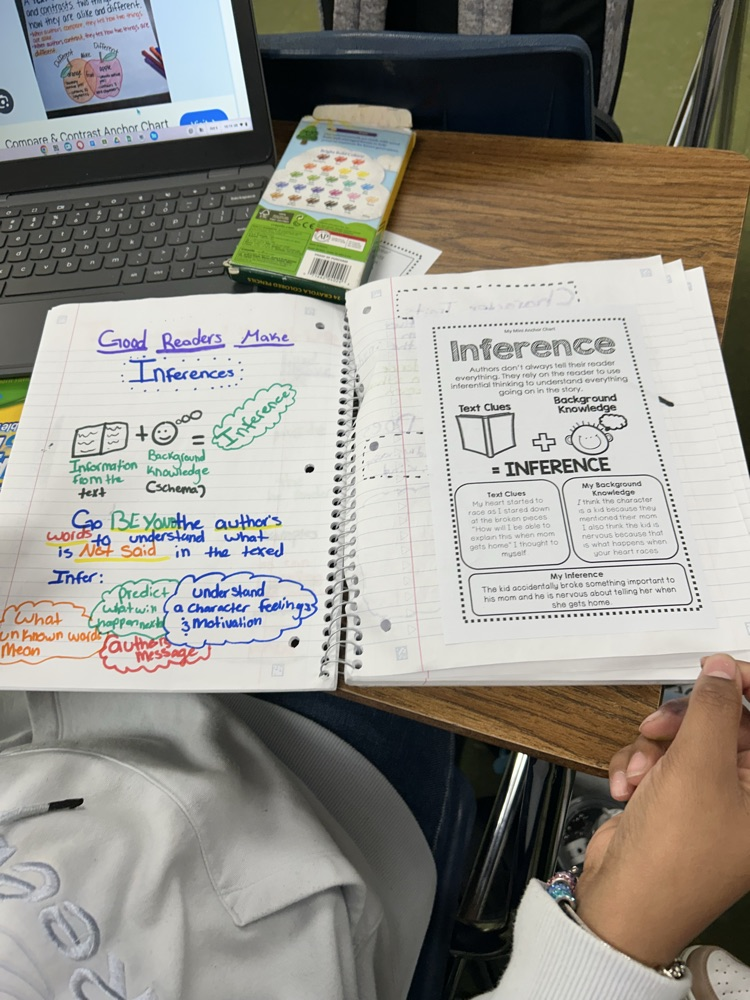 and contrasts two things
how they are alike and different.
Compare & Contrast Anchor Chart
24 CRAYOLA COLORED PENCILS
Good Readers Make
Inferences
+
=
Inference
Information
from the
text
Background
Knowledge
(schema)
Go BEYond the author's
words to understand what
is Not said in the texed
Infer:
predict
what will
happen next
understand
a character feelings
& Motivation
What
unknown words
Mean
authors
message
My Mini Anchor Chart
Inference
Authors don't always tell their reader
everything. They rely on the reader to use
inferential thinking to understand everything
going on in the story.
Text Clues
Background
Knowledge
+
= INFERENCE
Text Clues
My heart started to
race as I stared down
at the broken pieces.
"How will I be able to
explain this when mom
gets home" I thought to
myself
My Background
Knowledge
I think the character
is a kid because they
mentioned their mom.
I also think the kid is
nervous because that
is what happens when
your heart races.
My Inference
The kid accidentally broke something important to
his mom and he is nervous about telling her when
she gets home.